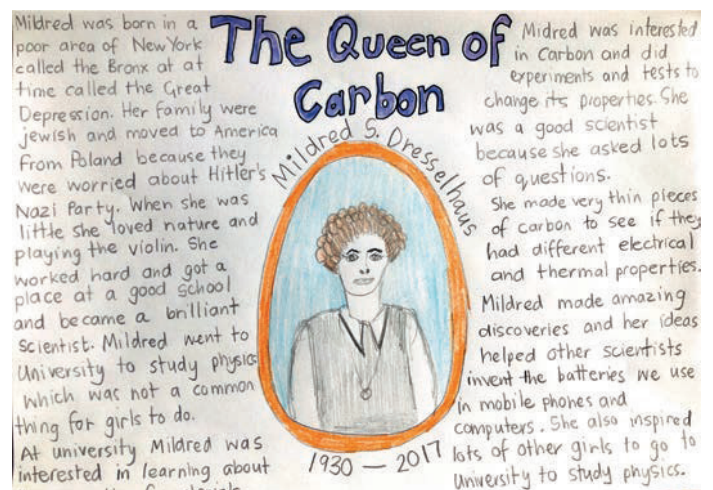 The Queen of
Carbon
Mildred S. Dresselhaus
1930 – 2017
Mildred was born in a
poor area of New York
called the Bronx at at
time called the Great
Depression. Her family were
jewish and moved to America
from Poland because they
were worried about Hitler's
Nazi Party. When she was
little she loved nature and
playing the violin. She
worked hard and got a
place at a good school
and became a brilliant
scientist. Mildred went to
University to study physics
which was not a common
thing for girls to do.
At university Mildred was
interested in learning about
Midred was interested
in Carbon and did
experiments and tests to
change its properties. She
was a good scientist
because she asked lots
of questions.
She made very thin pieces
of carbon to see if they
had different electrical
and thermal properties.
Mildred made amazing
discoveries and her ideas
helped other scientists
invent the batteries we use
in mobile phones and
computers. She also inspired
lots of other girls to go to
University to study physics.